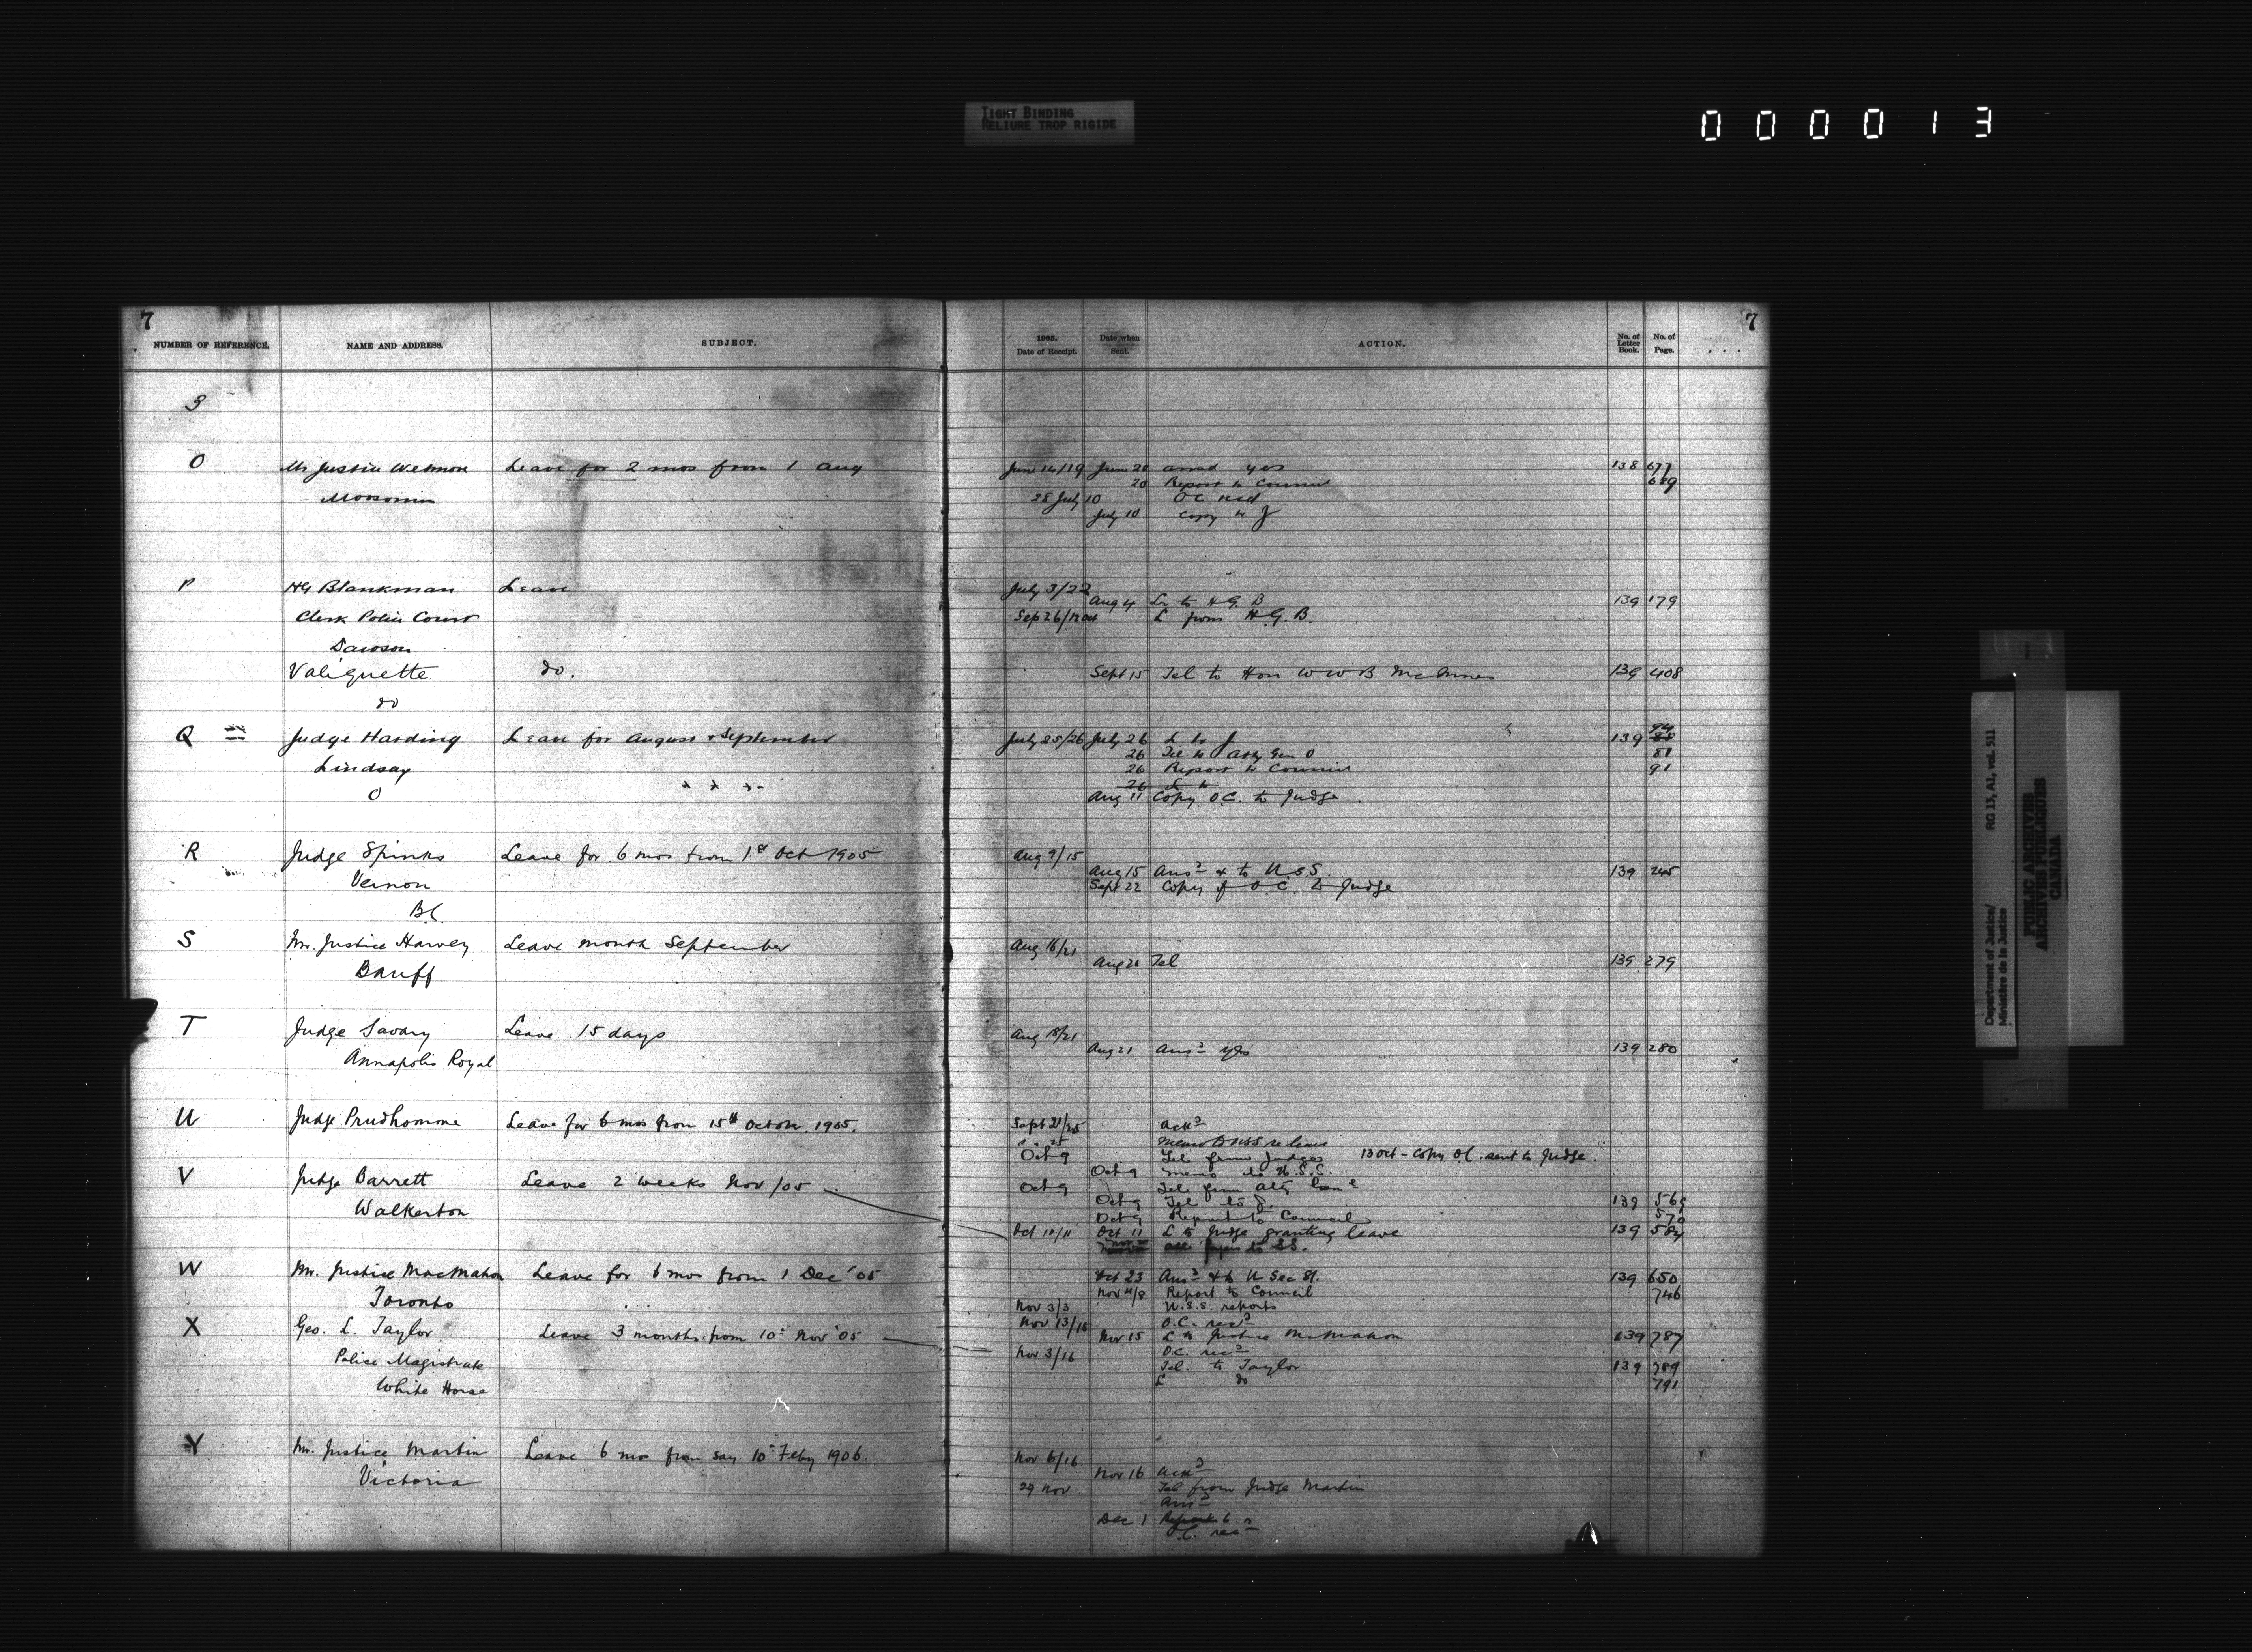 TIGHT BINDING
RELIURE TROP RIGIDE
000013
7 7
NUMBER OF REFERENCE. NAME AND ADDRESS. SUBJECT. 1905. Date of Receipt. Date when Sent. ACTION. No. of Letter Book. No. of Page.
3
O Mr Justice Wetmore Leave for 2 mos from 1 Aug June 14/19 June 20 ansd yes 138 677
20 Report to Council 679
Moosomin 28 July 10 OC recd
July 10 Copy to J
P HG Blankman Leave July 3/22
Aug 4 Lr to H.G. B 139 179
Clerk Police Court Sep 26/12 Oct L from H.G.B.
Dawson
Valiquette do. Sept 15 Tel to Hon W W B McInnes 139 408
do
Q Judge Harding Leave for August & September July 25/26 July 26 L to J 139 94
26 Tel to Atty Gen O 81
Lindsay 26 Report to Council 91
26 L to
O Aug 11 Copy O.C. to Judge.
R Judge Spinks Leave for 6 mos from 1st Oct 1905 Aug 9/15
Aug 15 Ansd & to U.S.S. 139 245
Vernon Sept 22 Copy of O.C. to Judge
B.C.
S Mr. Justice Harvey Leave month September Aug 16/21
Banff Aug 21 Tel 139 279
T Judge Savary Leave 15 days Aug 18/21
Annapolis Royal Aug 21 Ansd yes 139 280
U Judge Prudhomme Leave for 6 mos from 15th October. 1905. Sept 21/25 Ackd
" " 25 Memo to USS re leave
Oct 9 Tel from Judge 13 Oct - Copy O.C. sent to Judge.
Oct 9 Memo to U.S.S.
V Judge Barrett Leave 2 weeks Nov/05 Oct 9 Tel from Atty Genl
Oct 9 Tel to J. 139 569
Walkerton Oct 9 Report to Council 570
Oct 10/11 Oct 11 L to Judge granting leave 139 584
papers to SS.
W Mr. Justice MacMahon Leave for 6 mos from 1 Dec '05 Oct 23 Ansd & to U Sec St. 139 650
Nov 4/8 Report to Council 746
Toronto Nov 3/3 U.S.S. reports
X Geo. L. Taylor Leave 3 months from 10th Nov '05 Nov 13/15 O.C. recd
Nov 15 L to Justice McMahon 139 787
Police Magistrate Nov 3/16 O.C. recd
Tel. to Taylor 139 789
White Horse L do 791
Y Mr. Justice Martin Leave 6 mos from say 10th Feby 1906. Nov 6/16
Nov 16 Ackd
Victoria 29 Nov Tel from Judge Martin
Ansd
Dec 1 Report to
O.C. recd
Department of Justice/ RG 13, A1, vol. 511
Ministère de la Justice
PUBLIC ARCHIVES
ARCHIVES PUBLIQUES
CANADA